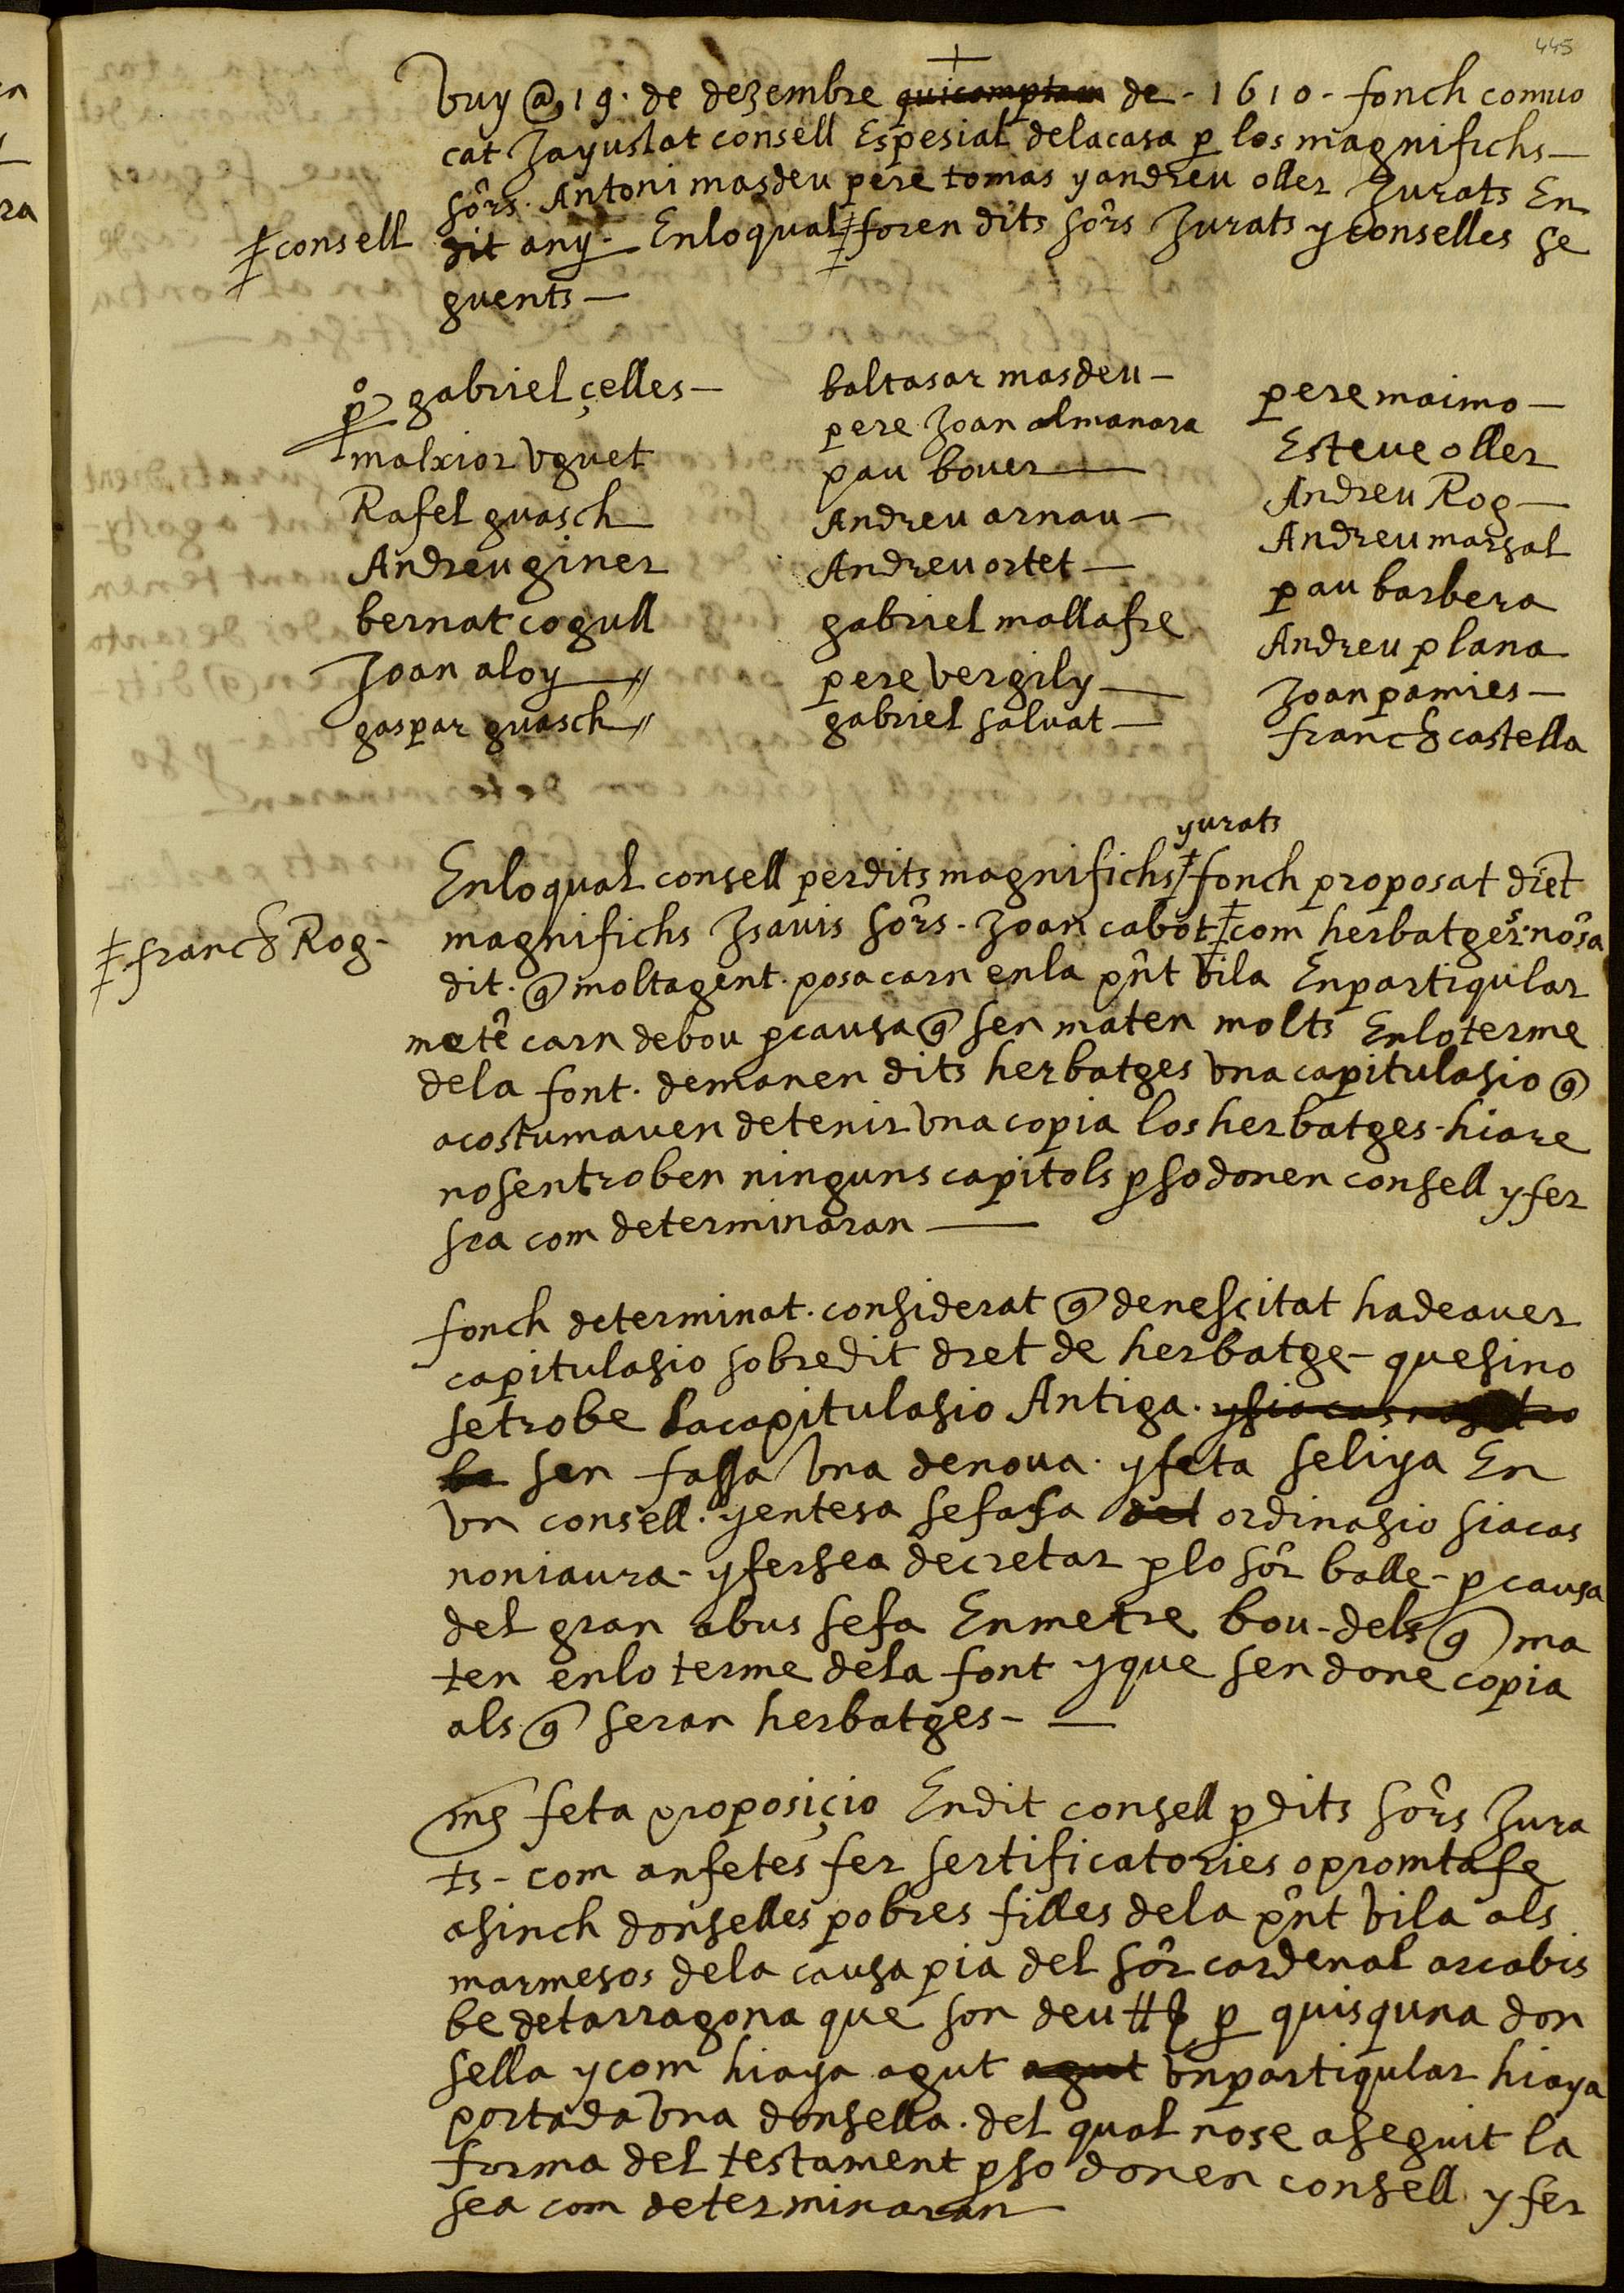 445
vuy @ 19. de dezembre quicomptam de - 1610 - fonch conuo
cat Jayustat consell Espesial delacasa p los magnifichs —
sôrs. Antoni masdeu pere tomas y andreu oller Jurats En
dit any. — Enloqual ‡ foren dits sôrs Jurats y conselles se
‡ consell
guents —
pº gabriel çelles —
malxior vguet
Rafel guasch
Andreu giner
bernat cogull
Joan aloy —//
gaspar guasch //
baltasar masdeu —
pere Joan almanara
pau bouer —
Andreu arnau —
Andreu ortet —
gabriel mallafre
pere vergily —
gabriel saluat —
pere maimo —
Esteue oller
Andreu Rog —
Andreu marsal
pau barbera
Andreu plana
Joan pamies —
franch castella
yurats
Enloqual consell perdits magnifichs ‡ fonch proposat diet
magnifichs Jsauis sôrs. Joan cabot ‡ com herbatgers. nôsa
‡ franch Rog -
dit. q moltagent. posacarn enla pnt vila Enpartiqular
metê carn debou p causa q sen maten molts Enloterme
dela font. demanen dits herbatges vna capitulasio q
acostumauen detenir vna copia los herbatges - hiare
nosentroben ninguns capitols p so donen consell y fer
sea com determinaran —
fonch determinat. considerat q denescitat hadeauer
capitulasio sobredit dret de herbatge - quesino
setrobe lacapitulasio Antiga. ysiacas nosetro
be sen fassa vna denoua. y feta seliya En
vn consell. yentesa sefasa del ordinasio siacas
noniaura - yfersea decretar p lo sôr balle - p causa
del gran abus sefa Enmetre bou - dels q ma
ten enlo terme dela font yque sen done copia
als q seran herbatges - —
mes feta proposiçio Endit consell p dits sôrs Jura
ts - com anfetes fer sertificatories opromtafe
asinch donselles pobres filles dela pnt vila als
marmesos dela causa pia del sôr cardenal arcabis
be detarragona que son deu ₶ p quisquna don
sella ycom hiaya agut agut vnpartiqular hiaya
portada vna donsella. del qual nose aseguit la
forma del testament p so donen consell y fer
sea com determinaran